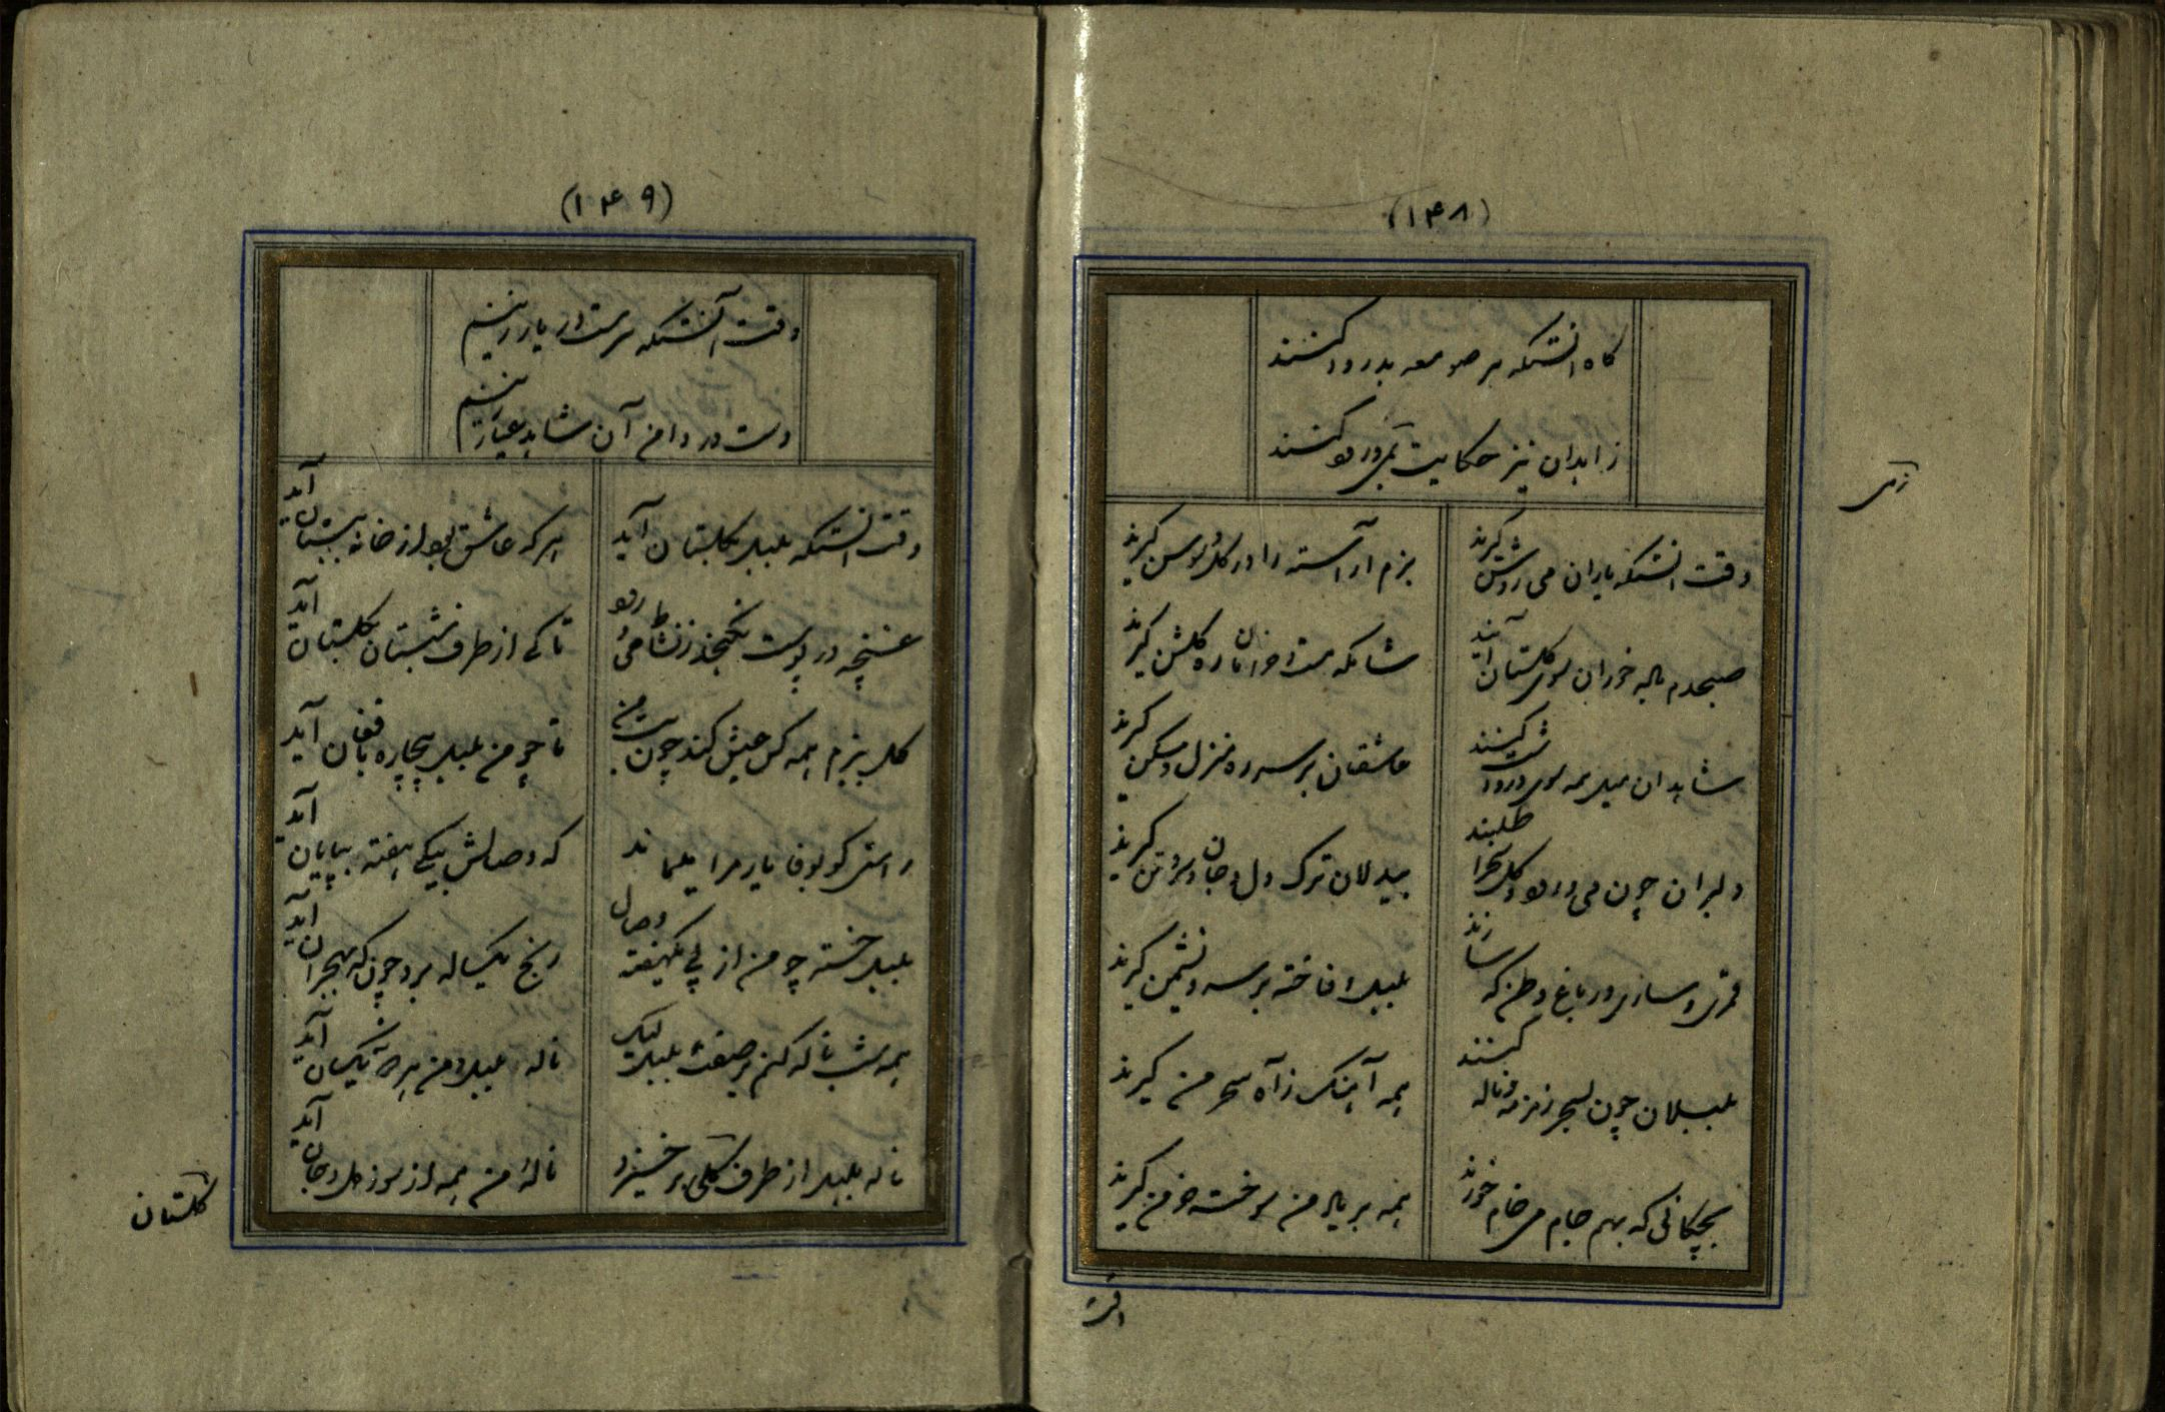 (۱۴۸)
گاه انستکه بر صومعه بدرود کنند
زاهدان نیز حکایت ز می و رود کنند
وقت انستکه یاران می روشن گیرند
بزم آراسته را در گل و سوسن گیرند
صبحدم باله خوران سوی گلستان آیند
شامگه مست و خزان راه گلشن گیرند
شاهدان میل همه سوی می و رود کنند
عاشقان بر سر ره منزل و مسکن گیرند
دلبران چون می و رود و گل و صحرا طلبند
بیدلان ترک دل و جان و سر و تن گیرند
قمری و ساری در باغ وطن گه سازند
بلبل و فاخته بر سرو نشیمن گیرند
بلبلان چون بسحر زمزمه و ناله کنند
همه آهنک ز آه سحر من گیرند
بچکانی که بهم جام می خام خورند
همه بر یاد من سوخته خرمن گیرند
وقت
(۱۴۹)
وقت آنستکه سرمست در یار زنیم
دست در دامن آن شاهد عیار زنیم
وقت انستکه بلبل بگلستان آید
هر که عاشق بود از خانه ببستان آید
غنچه در پوست نگنجد ز نشاط می و رود
تا کی از طرف شبستان بگلستان آید
گل ببزم همه کس عیش کند چون بت من
تا چو من بلبل بیچاره بافغان آید
راستی گو بوفا یار مرا میماند
که وصالش بیکی هفته بپایان آید
بلبل خسته چو من از پی یکهفته وصال
رنج یکساله برد چون که بهجران آید
همه شب ناله کنم بر صفت بلبل لیک
ناله بلبل و من هر دو نه یکسان آید
ناله بلبل از طرف گلی برخیزد
ناله من همه از سوز دل و جان آید
گلستان